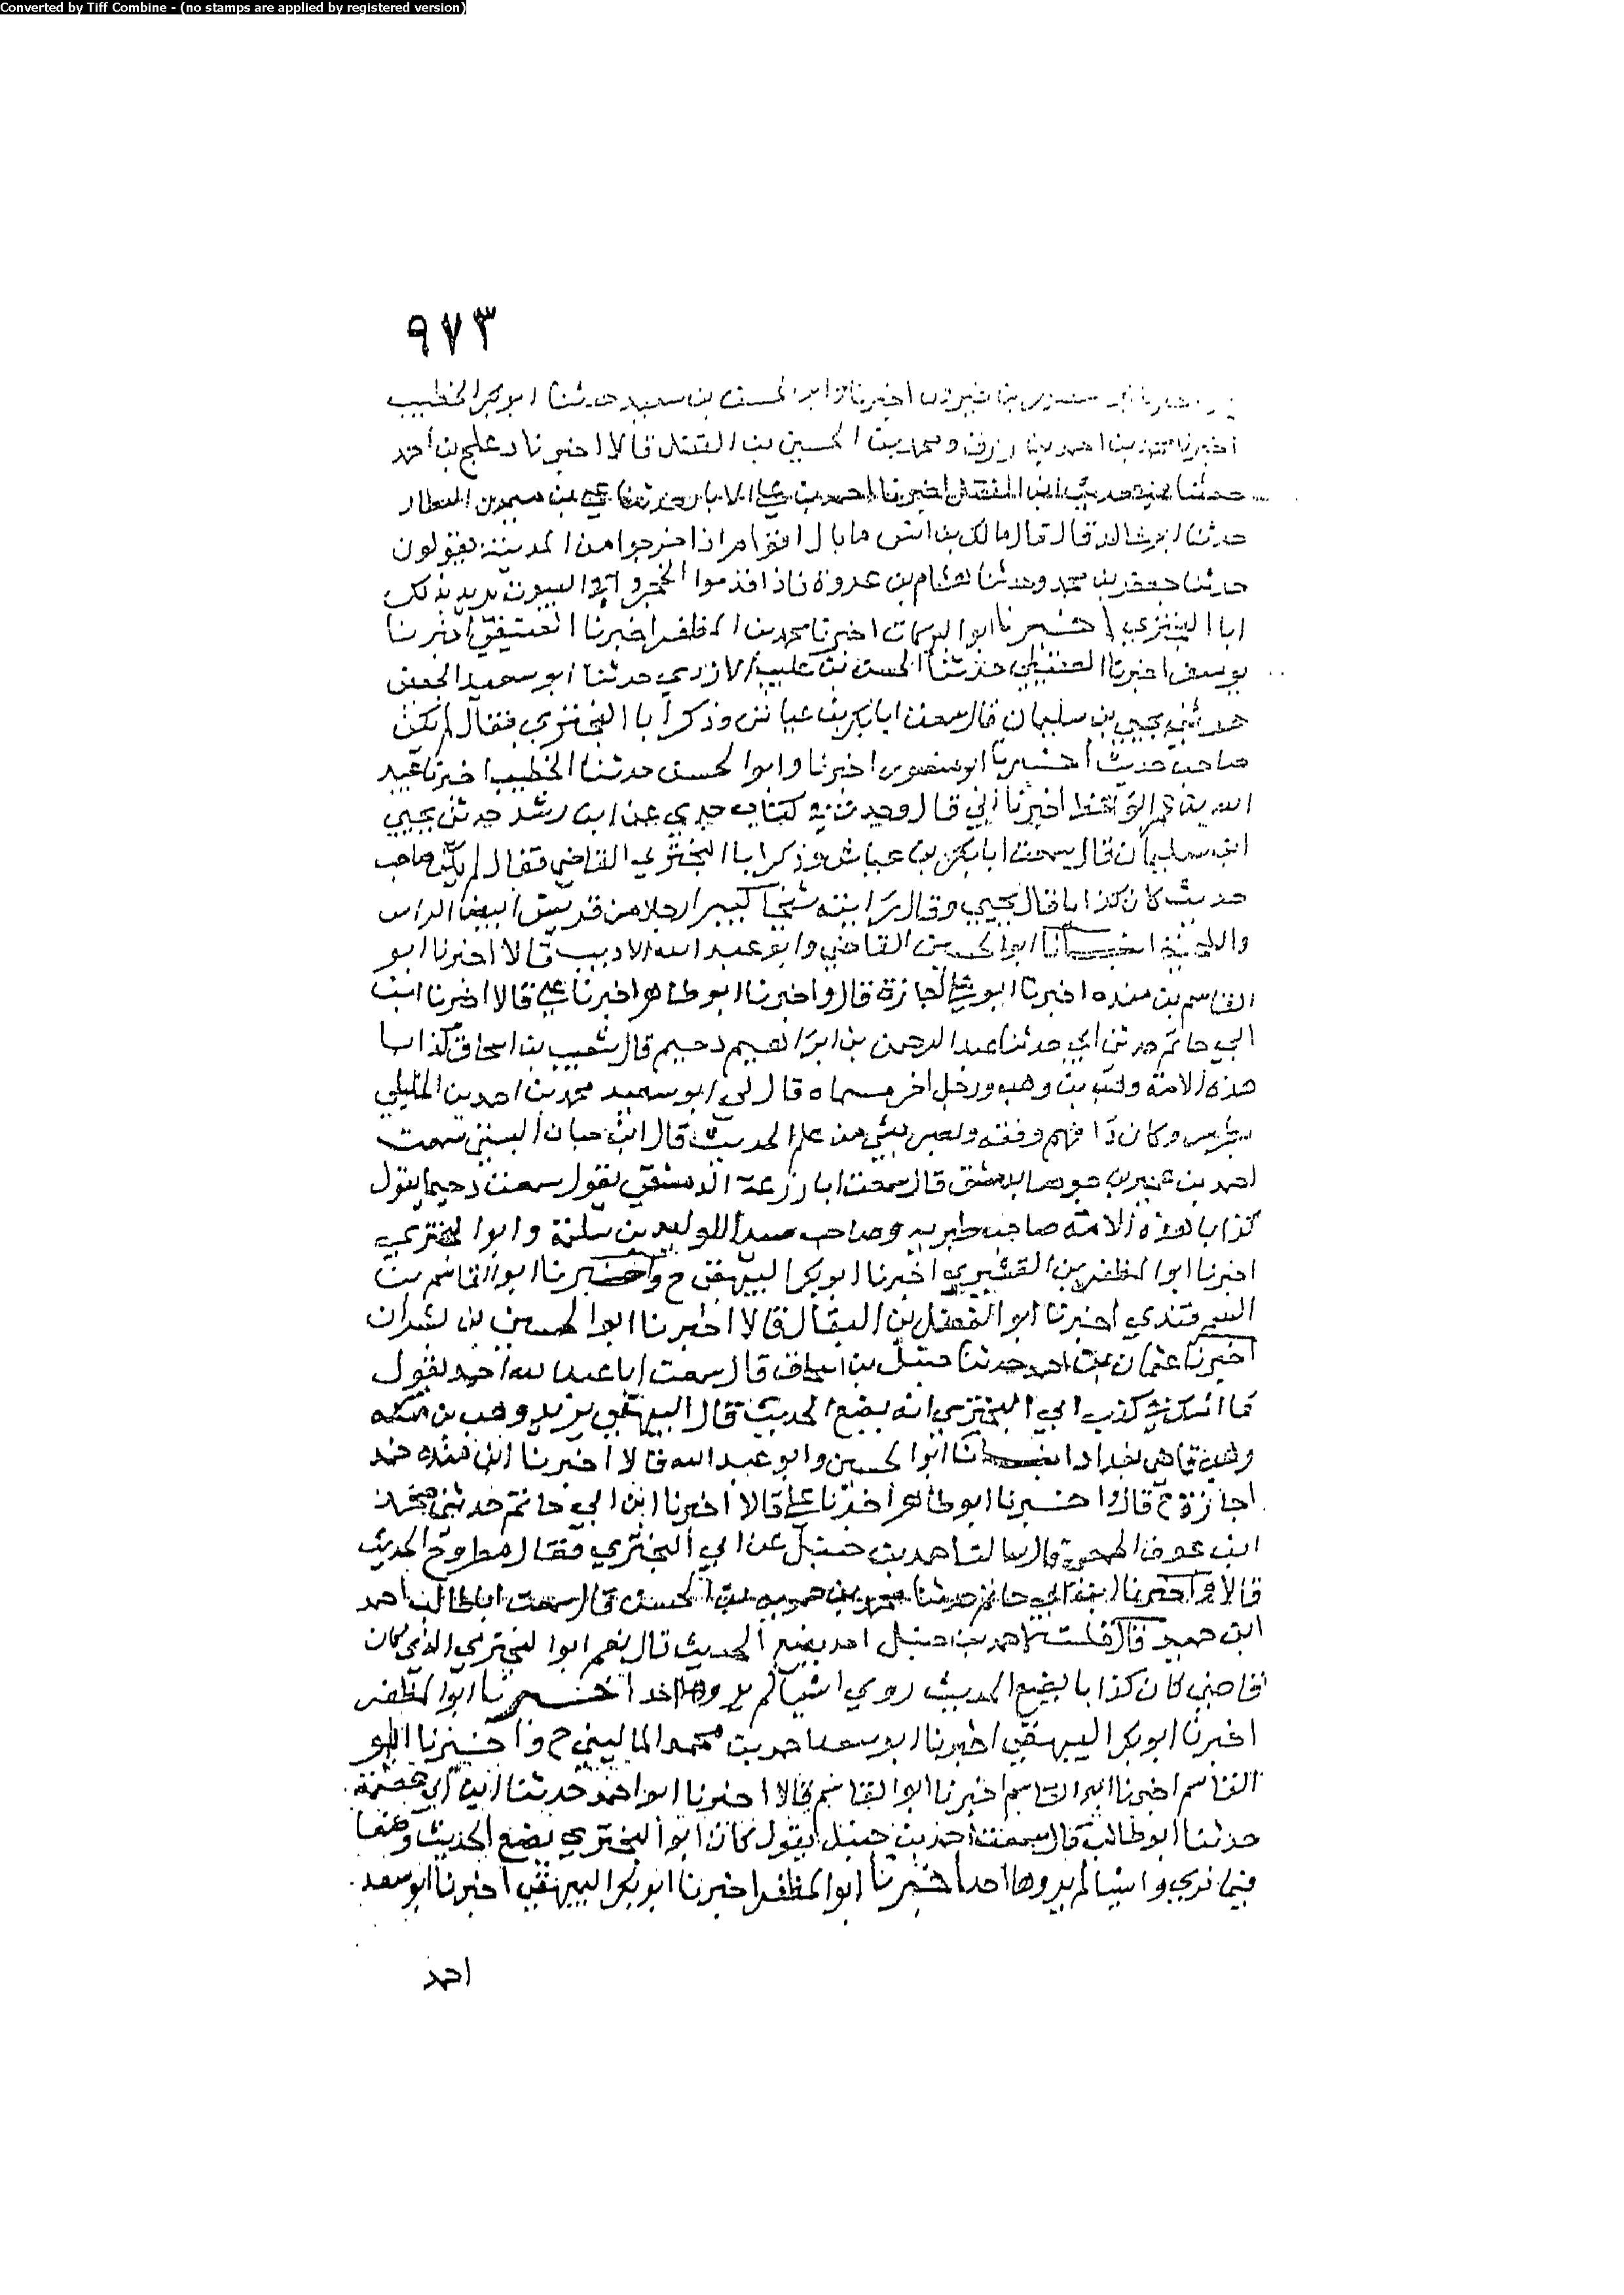 Converted by Tiff Combine - (no stamps are applied by registered version)
٩٧٣
منصور بن خيرون اخبرنا وابو الحسن بن سعيد حدثنا ابو بكر الخطيب
اخبرنا محمد بن احمد بن رزق ومحمد بن الحسين بن الفضل قالا اخبرنا دعلج بن احمد
حدثنا وفي حديث ابن الفضل اخبرنا احمد بن علي الابار حدثنا علي بن ميمون العطار
حدثنا ابو خالد قال قال مالك بن انس ما بال اقوام اذا خرجوا من المدينة يقولون
حدثنا جعفر بن محمد وحدثنا هشام بن عروة فاذا قدموا البيوت يريد بذلك
ابا البختري اخبرنا ابو البركات اخبرنا محمد بن المظفر اخبرنا العتيقي اخبرنا
يوسف اخبرنا العقيلي حدثنا الحسن بن عليب الازدي حدثنا ابو سعيد الجعفي
حدثني يحيى بن سليمان قال سمعت ابا بكر بن عياش وذكر ابا البختري فقال لم يكن
صاحب حديث اخبرنا ابو منصور اخبرنا وابو الحسن حدثنا الخطيب اخبرنا عبيد
الله بن عمر الواعظ اخبرنا ابي قال وجدت في كتاب جدي عن ابن رشد حدثني يحيى
ابن سليمان قال سمعت ابا بكر بن عياش وذكر ابا البختري القاضي فقال لم يكن صاحب
حديث كان كذابا قال يحيى وقال رايته شيخا كبيرا رجلا من قريش ابيض الراس
واللحية انبانا ابو الحسين القاضي وابو عبد الله الاديب قالا اخبرنا ابو
القاسم بن منده اخبرنا ابو علي اجازة قال واخبرنا ابو طاهر اخبرنا علي قالا اخبرنا ابن
ابي حاتم حدثني ابي حدثنا عبد الرحمن بن ابراهيم دحيم قال شعيب بن اسحاق كذابا
هذه الامة وهب بن وهب ورجل اخر سماه قال لي ابو سعيد محمد بن احمد بن الخليلي
وكان ذا فهم وفقه وبصر بشيء من علم الحديث قال ابن حبان البستي سمعت
احمد بن عمير بن جوصا بدمشق قال سمعت ابا زرعة الدمشقي يقول سمعت دحيما يقول
كذابا هذه الامة صاحب طبرية وصاحب صيدا الوليد بن سلمة وابو البختري
اخبرنا ابو المظفر بن القشيري اخبرنا ابو بكر البيهقي ح واخبرنا ابو القاسم بن
السمرقندي اخبرنا ابو الفضل بن البقال قالا اخبرنا ابو الحسين بن بشران
اخبرنا عثمان بن احمد حدثنا حنبل بن اسحاق قال سمعت ابا عبد الله احمد يقول
ما اشك في كذب ابي البختري انه يضع الحديث قال البيهقي يريد وهب بن
وهب قاضي بغداد انبانا ابو الحسين وابو عبد الله قالا اخبرنا ابن منده حمد
اجازة ح قال واخبرنا ابو طاهر اخبرنا علي قالا اخبرنا ابن ابي حاتم حدثني محمد
ابن عوف الحمصي قال سالت احمد بن حنبل عن ابي البختري فقال مطروح الحديث
قالا واخبرنا ابن ابي حاتم حدثنا محمد بن حمويه بن الحسن قال سمعت ابا طالب احمد
ابن حميد قال قلت لاحمد بن حنبل احد يضع الحديث قال نعم ابو البختري الذي كان
قاضي كان كذابا يضع الحديث روى اشيا لم يروها احد اخبرنا ابو المظفر
اخبرنا ابو بكر البيهقي اخبرنا ابو سعد احمد بن محمد الماليني ح واخبرنا ابو
القاسم اخبرنا ابو القاسم اخبرنا ابو القاسم قالا اخبرنا ابو احمد حدثنا ابن ابي عصمة
حدثنا ابو طالب قال سمعت احمد بن حنبل يقول كان ابو البختري يضع الحديث وضعا
فيما نرى واشيا لم يروها احد اخبرنا ابو المظفر اخبرنا ابو بكر البيهقي اخبرنا ابو سعد
احمد